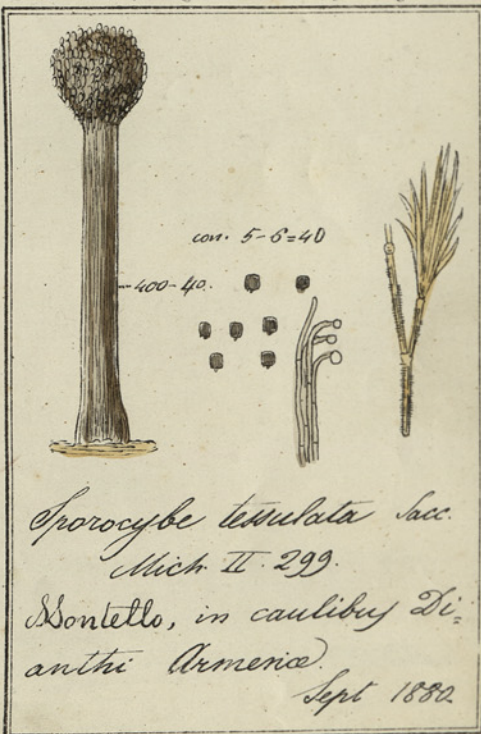 con. 5-6=4D
400-40.
Sporocybe tessulata Sacc.
Mich. II. 299.
Montello, in caulibus Di=
anthi Armeriæ.
Sept 1880